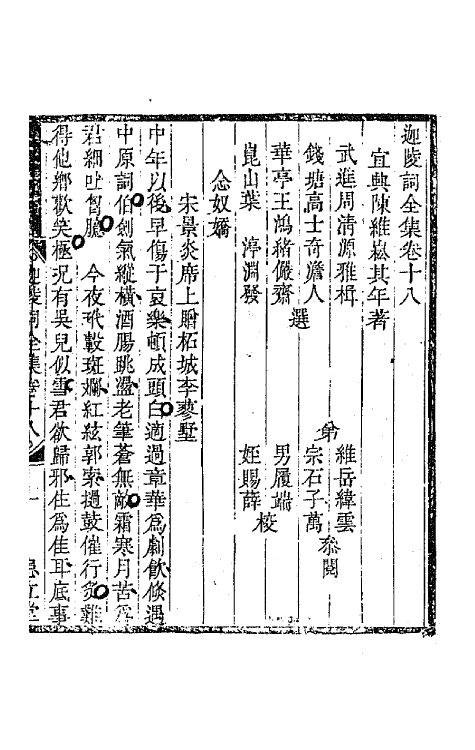 迦陵詞全集卷十八
宜興陳維崧其年著
武進周清源雅楫
錢塘高士奇澹人
華亭王鴻緒儼齋
崑山葉 渟淵發
選
弟
維岳緯雲
宗石子萬
叅閱
男履端
姪賜薛
校
念奴嬌
宋景炎席上贈柘城李蓼墅
中年以後早傷于哀樂頓成頭白適過章華爲劇飲倐遇
中原詞伯劍氣縱橫酒腸跳盪老筆蒼無敵霜寒月苦爲
君細吐胷臆 今夜玳轂斑斕紅絃郭索撾鼓催行炙離
得他鄉歡笑極况有吳兒似雪君欲歸邪住爲佳耳底事
迦陵詞全集卷十八
一
患立堂